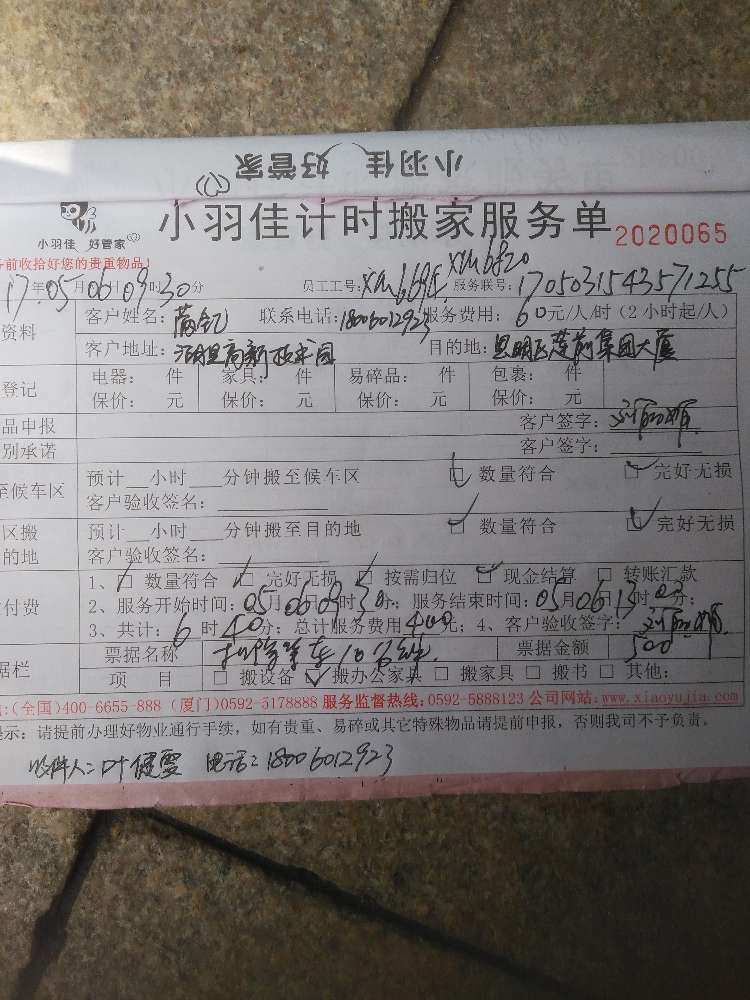 小羽佳 好管家
小羽佳 好管家
小羽佳计时搬家服务单 2020065
前收拾好您的贵重物品!
17年05月06日09时30分 员工工号: 服务联号:1705031543571255
资料 客户姓名: 联系电话:18006012923 服务费用:60元/人/时(2小时起/人)
客户地址:湖里高新技术园 目的地:思明区莲前集团大厦
登记 电器: 件 家具: 件 易碎品: 件 包裹: 件
保价: 元 保价: 元 保价: 元 保价: 元
品申报 客户签字:
别承诺 客户签字:
至候车区 预计__小时__分钟搬至候车区 数量符合 完好无损
客户验收签名:
区搬 预计__小时__分钟搬至目的地 数量符合 完好无损
的地 客户验收签名:
1、数量符合 完好无损 按需归位 现金结算 转账汇款
付费 2、服务开始时间:05月06日09时30分; 服务结束时间:05月06日13时03分;
3、共计:6时40分; 总计服务费用400元; 4、客户验收签字:
据栏 票据名称 票据金额 500
项 目 搬设备 搬办公家具 搬家具 搬书 其他:
:(全国)400-6655-888 (厦门)0592-5178888 服务监督热线:0592-5888123 公司网站:www.xiaoyujia.com
示:请提前办理好物业通行手续,如有贵重、易碎或其它特殊物品请提前申报,否则我司不予负责。
收件人:叶健雯 电话:18006012923